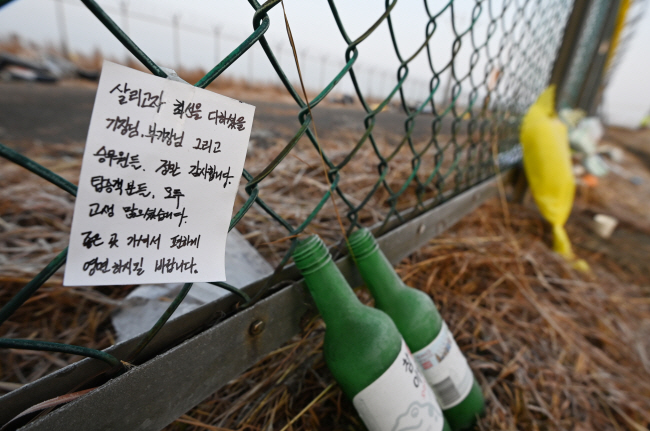 살리고자 최선을 다하셨을
기장님, 부기장님 그리고
승무원들. 정말 감사합니다.
탑승객분들, 모두
고생 많으셨습니다.
좋은 곳 가셔서 편하게
영면 하시길 바랍니다.